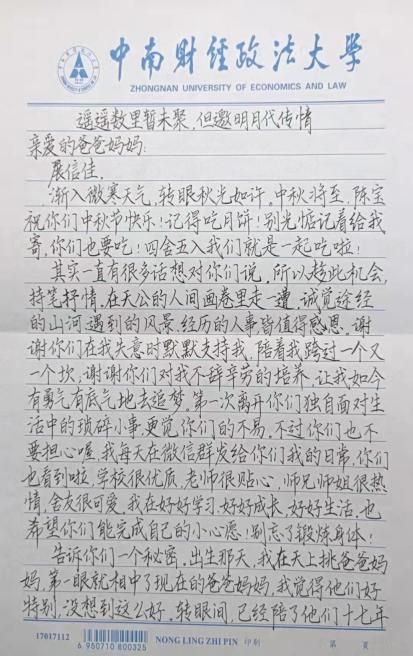 中南财经政法大学
ZHONGNAN UNIVERSITY OF ECONOMICS AND LAW
遥遥数里暂未聚,但邀明月代传情
亲爱的爸爸妈妈:
展信佳。
渐入微寒天气,转眼秋光如许。中秋将至,陈宝
祝你们中秋节快乐!记得吃月饼!别光惦记着给我
寄,你们也要吃!四舍五入我们就是一起吃啦!
其实一直有很多话想对你们说。所以趁此机会,
持笔抒情。在天公的人间画卷里走一遭,诚觉途经
的山河、遇到的风景、经历的人事皆值得感恩。谢
谢你们在我失意时默默支持我,陪着我跨过一个又
一个坎,谢谢你们对我不辞辛劳的培养,让我如今
有勇气有底气地去追梦。第一次离开你们独自面对生
活中的琐碎小事更觉你们的不易。不过你们也不
要担心喔,我每天在微信群发给你们我的日常,你们
也看到啦,学校很优质,老师很贴心,师兄师姐很热
情,舍友很可爱。我在好好学习、好好成长、好好生活。也
希望你们能完成自己的小心愿!别忘了锻炼身体!
告诉你们一个秘密。出生那天,我在天上挑爸爸妈
妈,第一眼就相中了现在的爸爸妈妈,我觉得他们好
特别,没想到这么好。转眼间,已经陪了他们十七年
17017112
6 950710 800325
NONG LING ZHI PIN 印刷
第 页